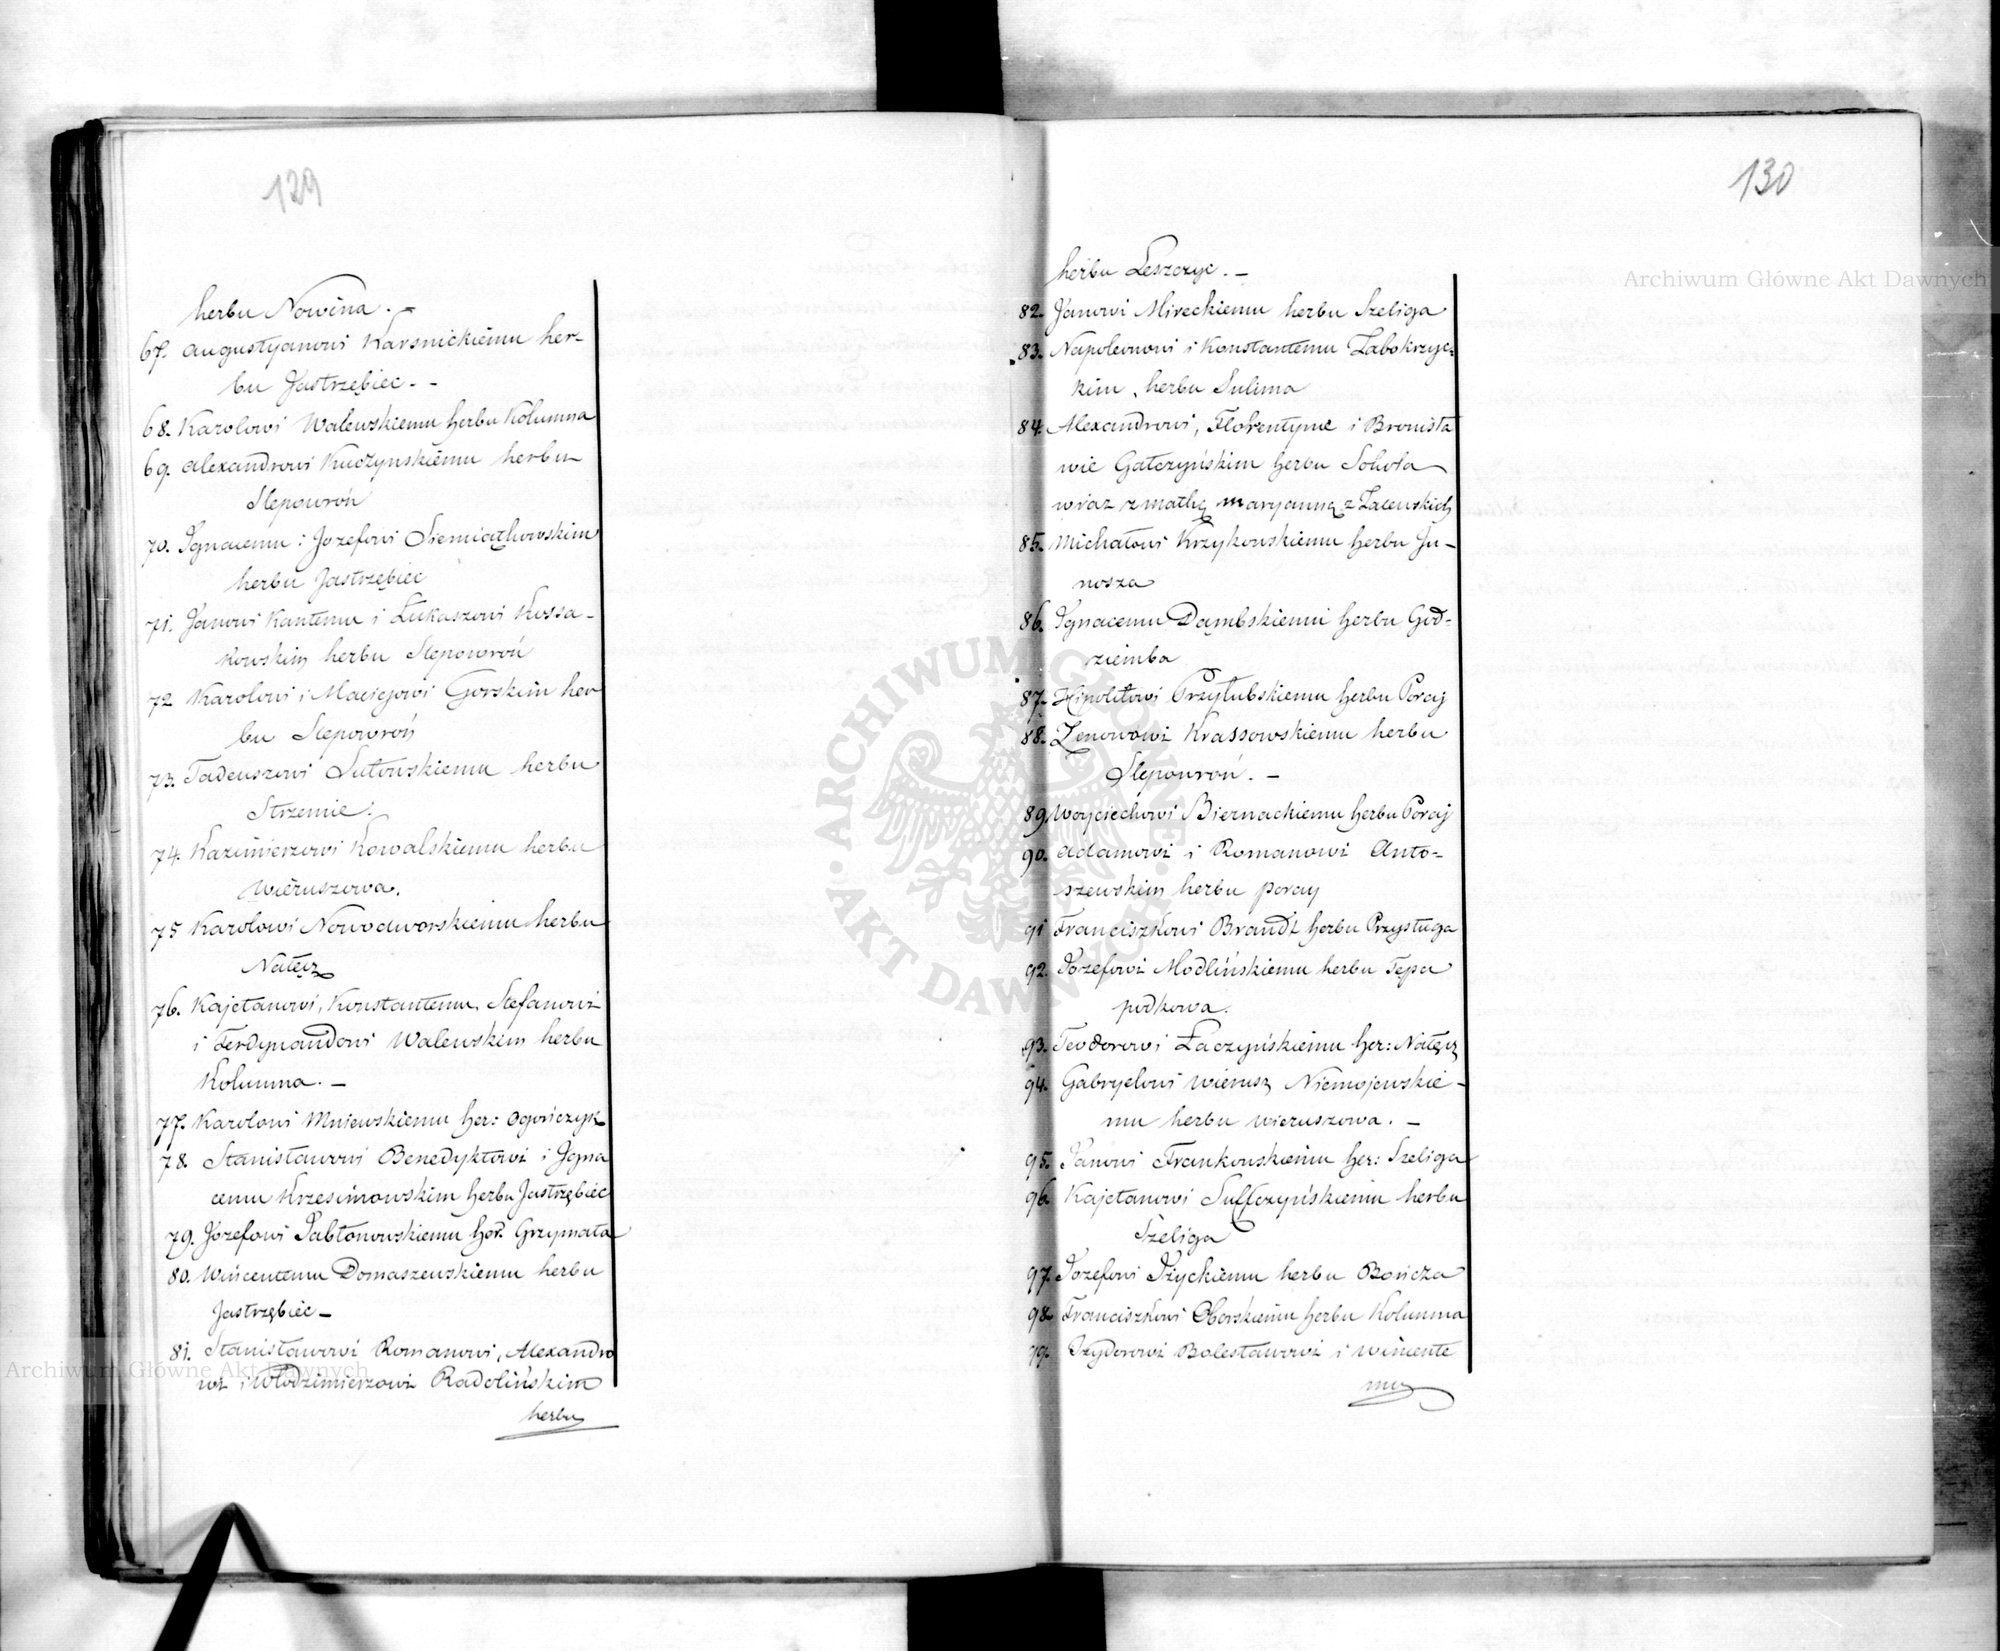 129
herbu Nowina. -
67. Augustyanowi Karsnickiemu her-
bu Jastrzębiec. -
68. Karolowi Walewskiemu herbu Kolumna
69. Alexandrowi Kuczynskiemu herbu
Slepowroń
70. Ignacemu i Jozefowi Siemiątkowskim
herbu Jastrzębiec
71. Janowi Kantemu i Łukaszowi Kossa-
kowskim herbu Slepowroń
72 Karolowi i Maciejowi Gorskim her
bu Slepowroń
73. Tadeuszowi Lutowskiemu herbu
Strzemie.
74. Kazimierzowi Kowalskiemu herbu
Wieruszowa.
75 Karolowi Nowodworskiemu herbu
Nałęcz
76. Kajetanowi, Konstantemu, Stefanowi
i Ferdynandowi Walewskim herbu
Kolumna. -
77. Karolowi Mniewskiemu her: Ogończyk
78. Stanisławowi Benedyktowi i Igna
cemu Krzesimowskim herbu Jastrzębiec
79. Jozefowi Jabłonowskiemu her. Grzymała
80. Wincentemu Domaszewskiemu herbu
Jastrzębiec -
81. Stanisławowi Romanowi, Alexandro
wi i Włodzimierzowi Radolińskim
herbu
130
herbu Leszczyc. -
82. Janowi Mireckiemu herbu Szeliga
83. Napoleonowi i Konstantemu Zabokrzyc-
kim, herbu Sulima
84. Alexandrowi, Florentynie i Bronisła
wie Gałczyńskim herbu Sokola
wraz z matką Maryanną z Zalewskich
85. Michałowi Krzykowskiemu herbu Ju-
nosza
86. Ignacemu Dąmbskiemu herbu God-
rziemba
87. Hipolitowi Przyłubskiemu herbu Poraj
88. Zenonowi Krassowskiemu herbu
Slepowroń. -
89. Woyciechowi Biernackiemu herbu Poraj
90. Adamowi i Romanowi Anto-
szewskim herbu poray
91 Franciszkowi Brandt herbu Przysługa
92. Jozefowi Modlińskiemu herbu Tępa
podkowa.
93. Teodorowi Łaczyńskiemu her: Nałęcz
94. Gabryelowi Wierusz Niemojewskie-
mu herbu wieruszowa. -
95. Janowi Frankowskiemu her: Szeliga
96. Kajetanowi Suffczyńskiemu herbu
Szeliga
97. Jozefowi Iżyckiemu herbu Bończa
98. Franciszkowi Oborskiemu herbu Kolumna
99. Izydorowi Bolesławowi i Wincente
mu
Archiwum Główne Akt Dawnych
Archiwum Główne Akt Dawnych
ARCHIWUM GŁÓWNE AKT DAWNYCH